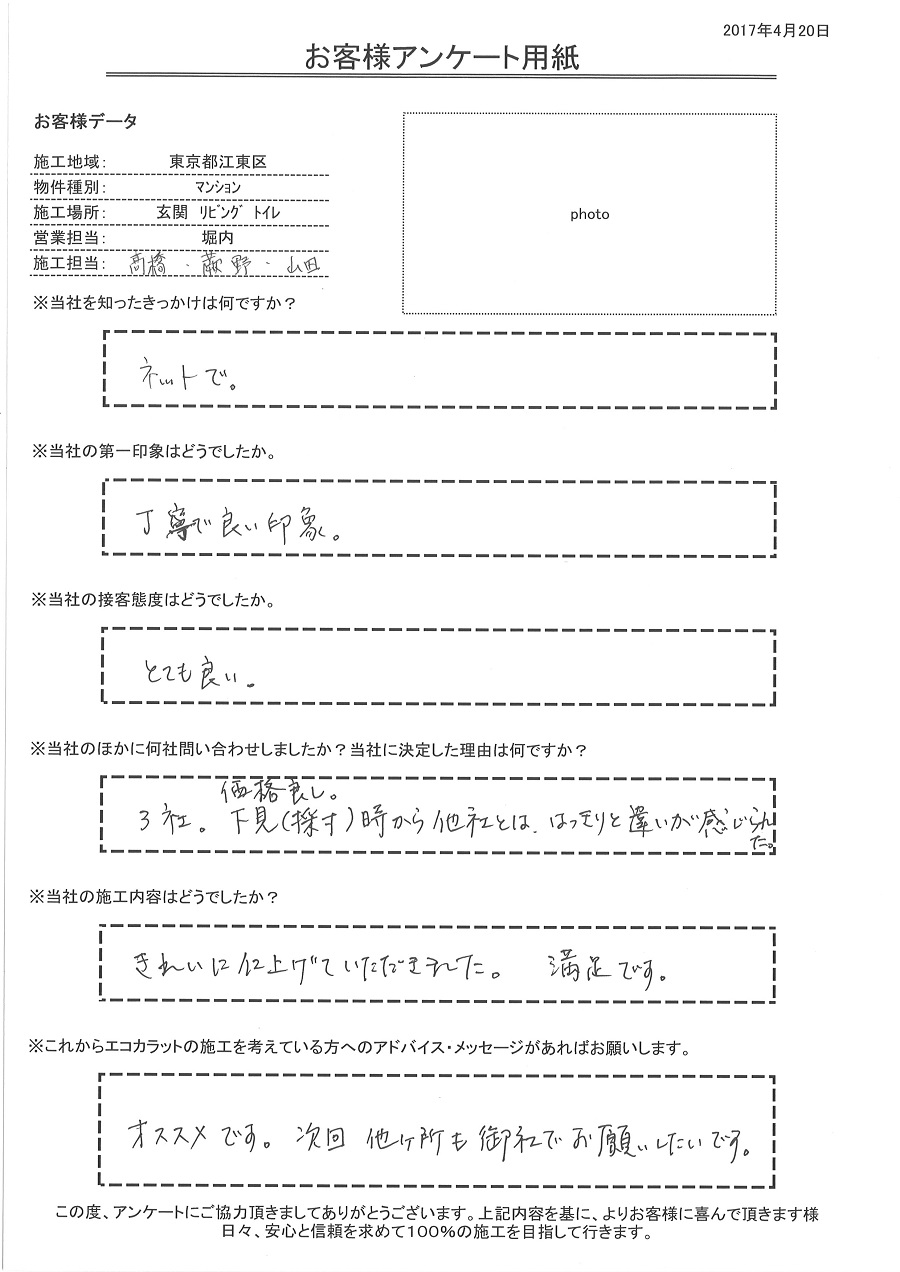 2017年4月20日
お客様アンケート用紙
お客様データ
施工地域： 東京都江東区
物件種別： ﾏﾝｼｮﾝ
施工場所： 玄関 ﾘﾋﾞﾝｸﾞ ﾄｲﾚ
営業担当： 堀内
施工担当： 高橋・荻野・山田
photo
※当社を知ったきっかけは何ですか？
ネットで。
※当社の第一印象はどうでしたか。
丁寧で良い印象。
※当社の接客態度はどうでしたか。
とても良い。
※当社のほかに何社問い合わせしましたか？当社に決定した理由は何ですか？
価格良し。
3社。下見(採寸)時から他社とは、はっきりと違いが感じられ
た。
※当社の施工内容はどうでしたか？
きれいに仕上げていただきました。 満足です。
※これからエコカラットの施工を考えている方へのアドバイス・メッセージがあればお願いします。
オススメです。次回 他ヶ所も御社でお願いしたいです。
この度、アンケートにご協力頂きましてありがとうございます。上記内容を基に、よりお客様に喜んで頂きます様
日々、安心と信頼を求めて100％の施工を目指して行きます。